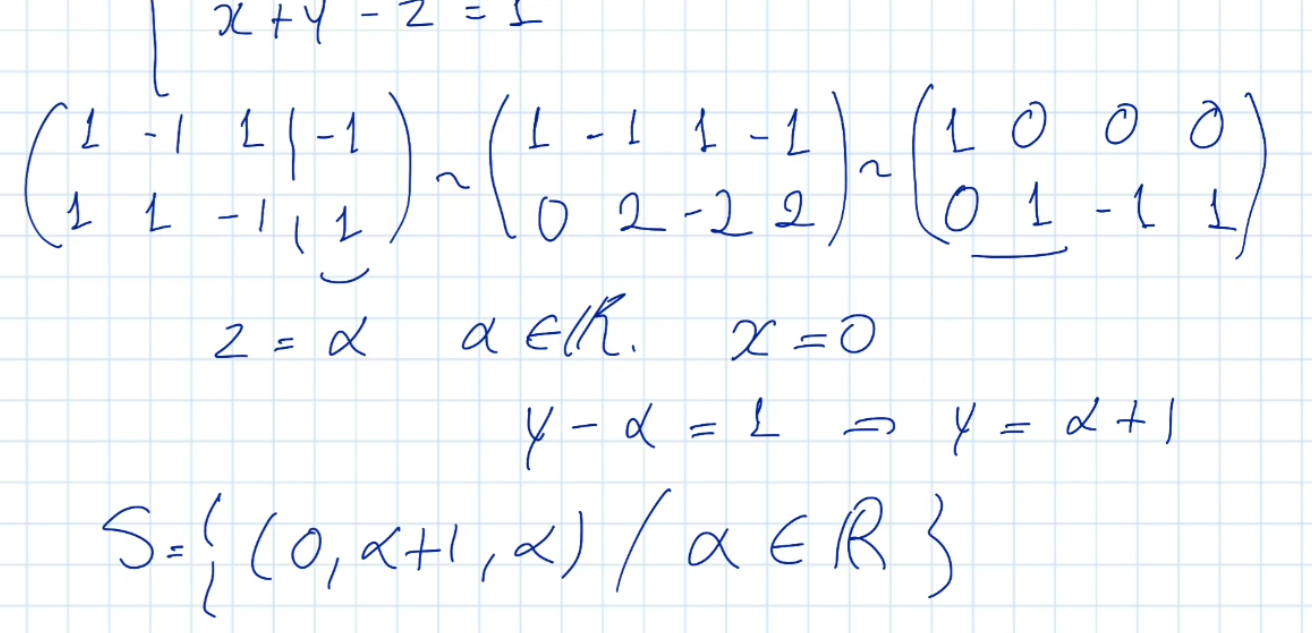 x + y - z = 1
( 1 -1 1 | -1 ) ~ ( 1 -1 1 -1 ) ~ ( 1 0 0 0 )
( 1 1 -1 | 1 ) ( 0 2 -2 2 ) ( 0 1 -1 1 )
z = α α ∈ ℝ. x = 0
y - α = 1 ⇒ y = α + 1
S = { (0, α+1, α) / α ∈ ℝ }